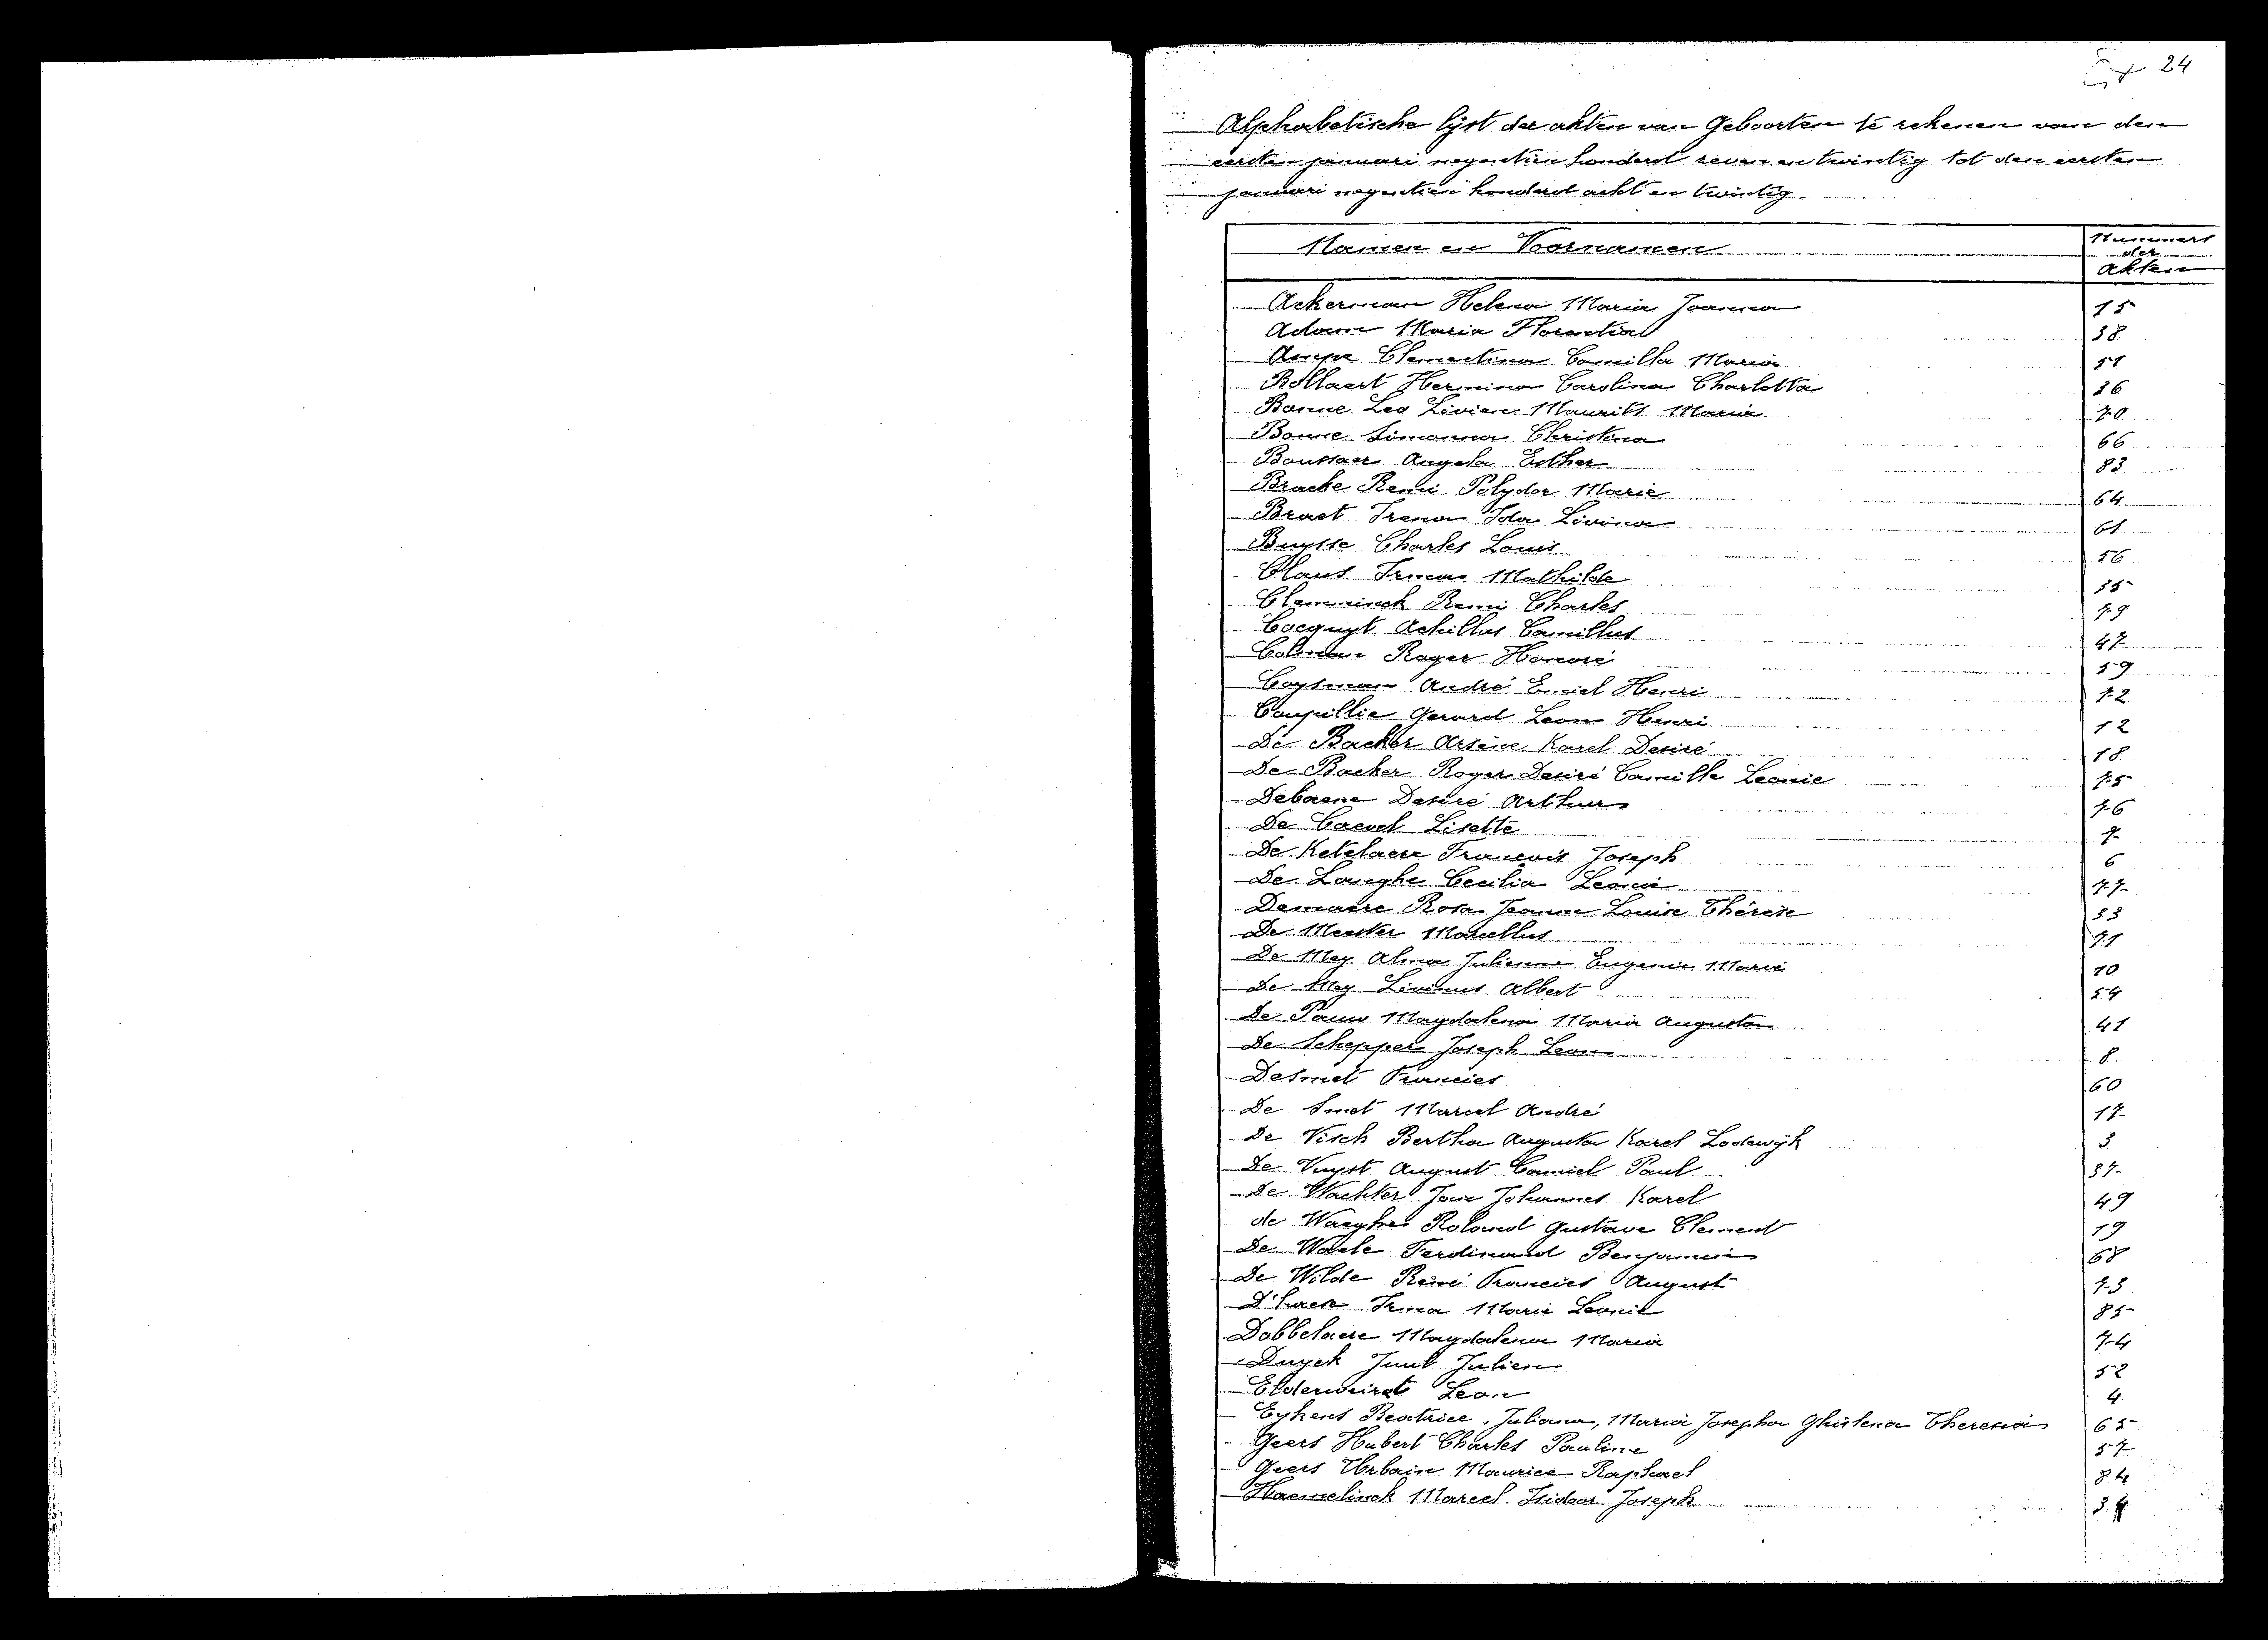 24
Alphabetische lijst der akten van Geboorten te rekenen van den
eersten januari negentien honderd zeven en twintig tot den eersten
januari negentien honderd acht en twintig.
Namen en Voornamen
Nummers
der
Akten
Ackerman Helena Maria Joanna 15
Adam Maria Florentia 38
Ampe Clementina Camilla Maria 51
Bollaert Hermina Carolina Charlotta 36
Bonne Leo Livien Maurits Maria 70
Bonne Simonna Christina 66
Boussaer Angela Esther 83
Bracke Remi Polydor Marie 64
Braet Irena Ida Livina 61
Buysse Charles Louis 56
Claus Irma Mathilde 35
Clemminck Remi Charles 79
Cocquyt Achillus Camillus 47
Colman Roger Honoré 59
Cooman André Emiel Henri 72
Coupillie Gerard Leon Henri 12
De Backer Arsène Karel Desiré 18
De Backer Roger Desiré Camille Leonie 75
Debaene Desiré Arthur 76
De Caevel Lisette 7
De Ketelaere François Joseph 6
De Langhe Cecilia Leonie 77
Demaere Rosa Jeanne Louise Thérèse 33
De Meester Marcellus 71
De Mey Alma Julienne Eugenie Marie 10
De Mey Livinus Albert 54
De Pauw Magdalena Maria Augusta 41
De Schepper Joseph Leon 8
Desmet Francies 60
De Smet Marcel André 17
De Visch Bertha Augusta Karel Lodewijk 3
De Vuyst August Camiel Paul 37
De Wachter Jan Johannes Karel 49
de Waeghe Roland Gustave Clement 19
De Waele Ferdinand Benjamin 68
De Wilde René Francies August 73
D'haese Irma Marie Leonie 85
Dobbelaere Magdalena Maria 74
Duyck Juul Julien 52
Elderweirdt Leon 4
Eykens Beatrice, Juliana, Maria Josepha Ghislena Theresia 65
Geers Hubert Charles Pauline 57
Geers Urbain Maurice Raphael 84
Haemelinck Marcel Isidoor Joseph 34